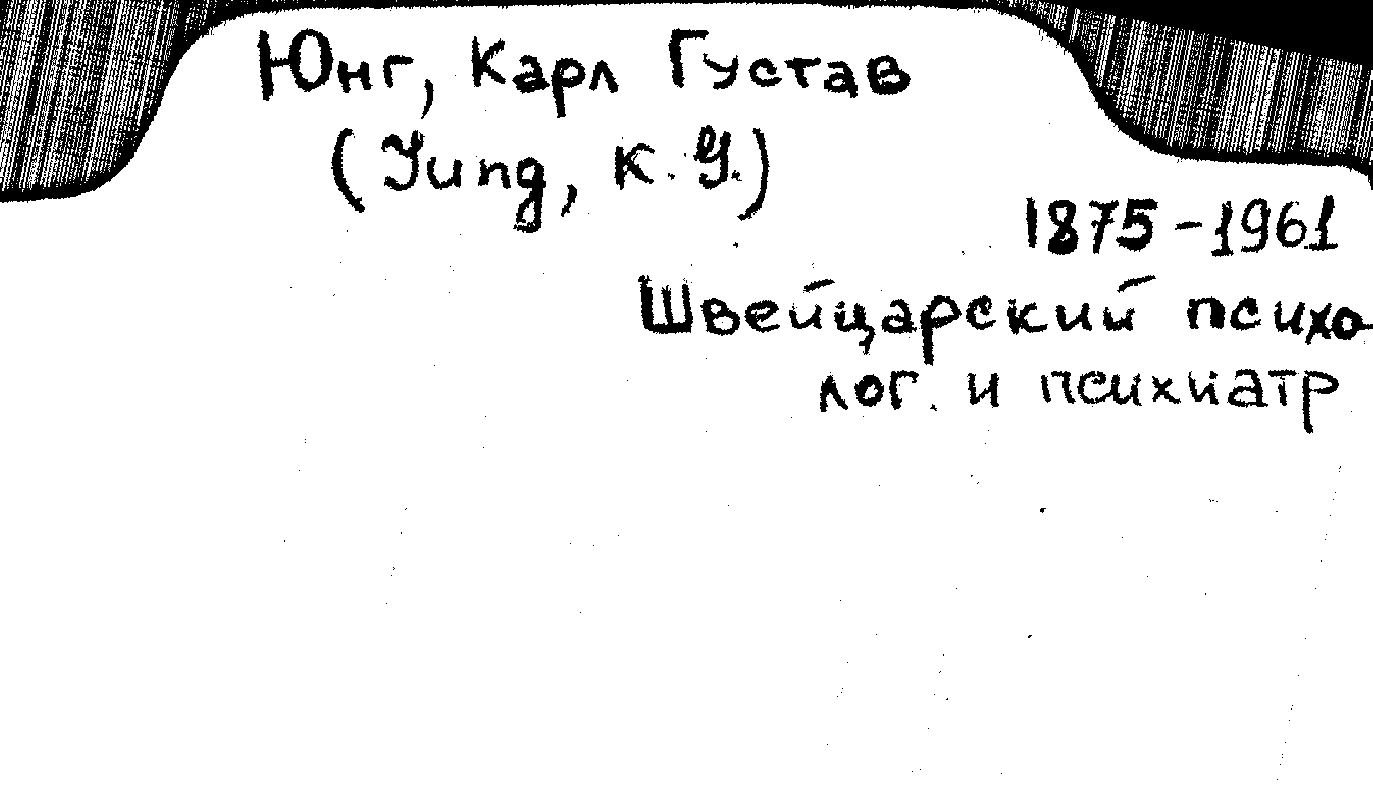 Юнг, Карл Густав
(Yung, K. G.)
1875-1961
Швейцарский психо-
лог. и психиатр